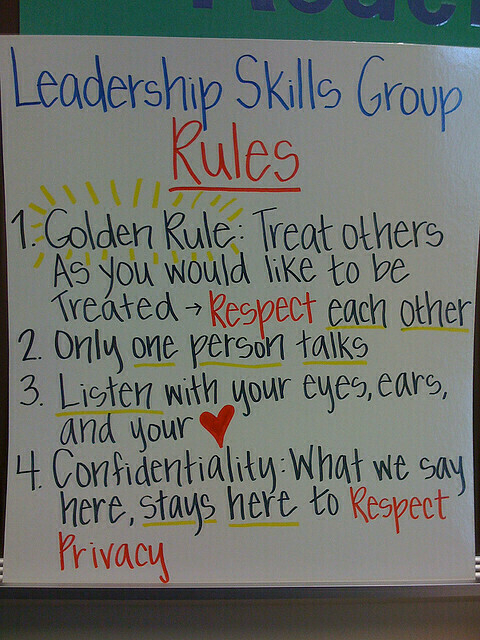 Leadership Skills Group
Rules
1. Golden Rule: Treat others
As you would like to be
Treated → Respect each other
2. Only one person talks
3. Listen with your eyes, ears,
and your ♥
4. Confidentiality: What we say
here, stays here to Respect
Privacy